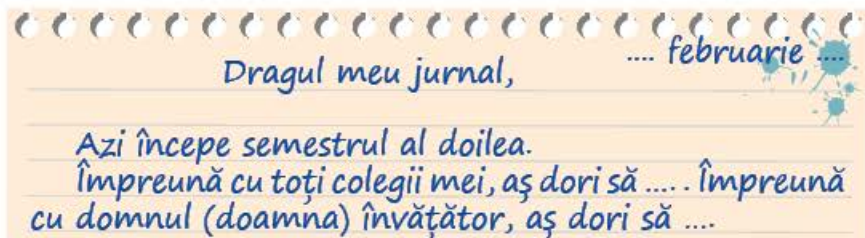 .... februarie ....
Dragul meu jurnal,
Azi începe semestrul al doilea.
Împreună cu toți colegii mei, aș dori să .... . Împreună
cu domnul (doamna) învățător, aș dori să ....